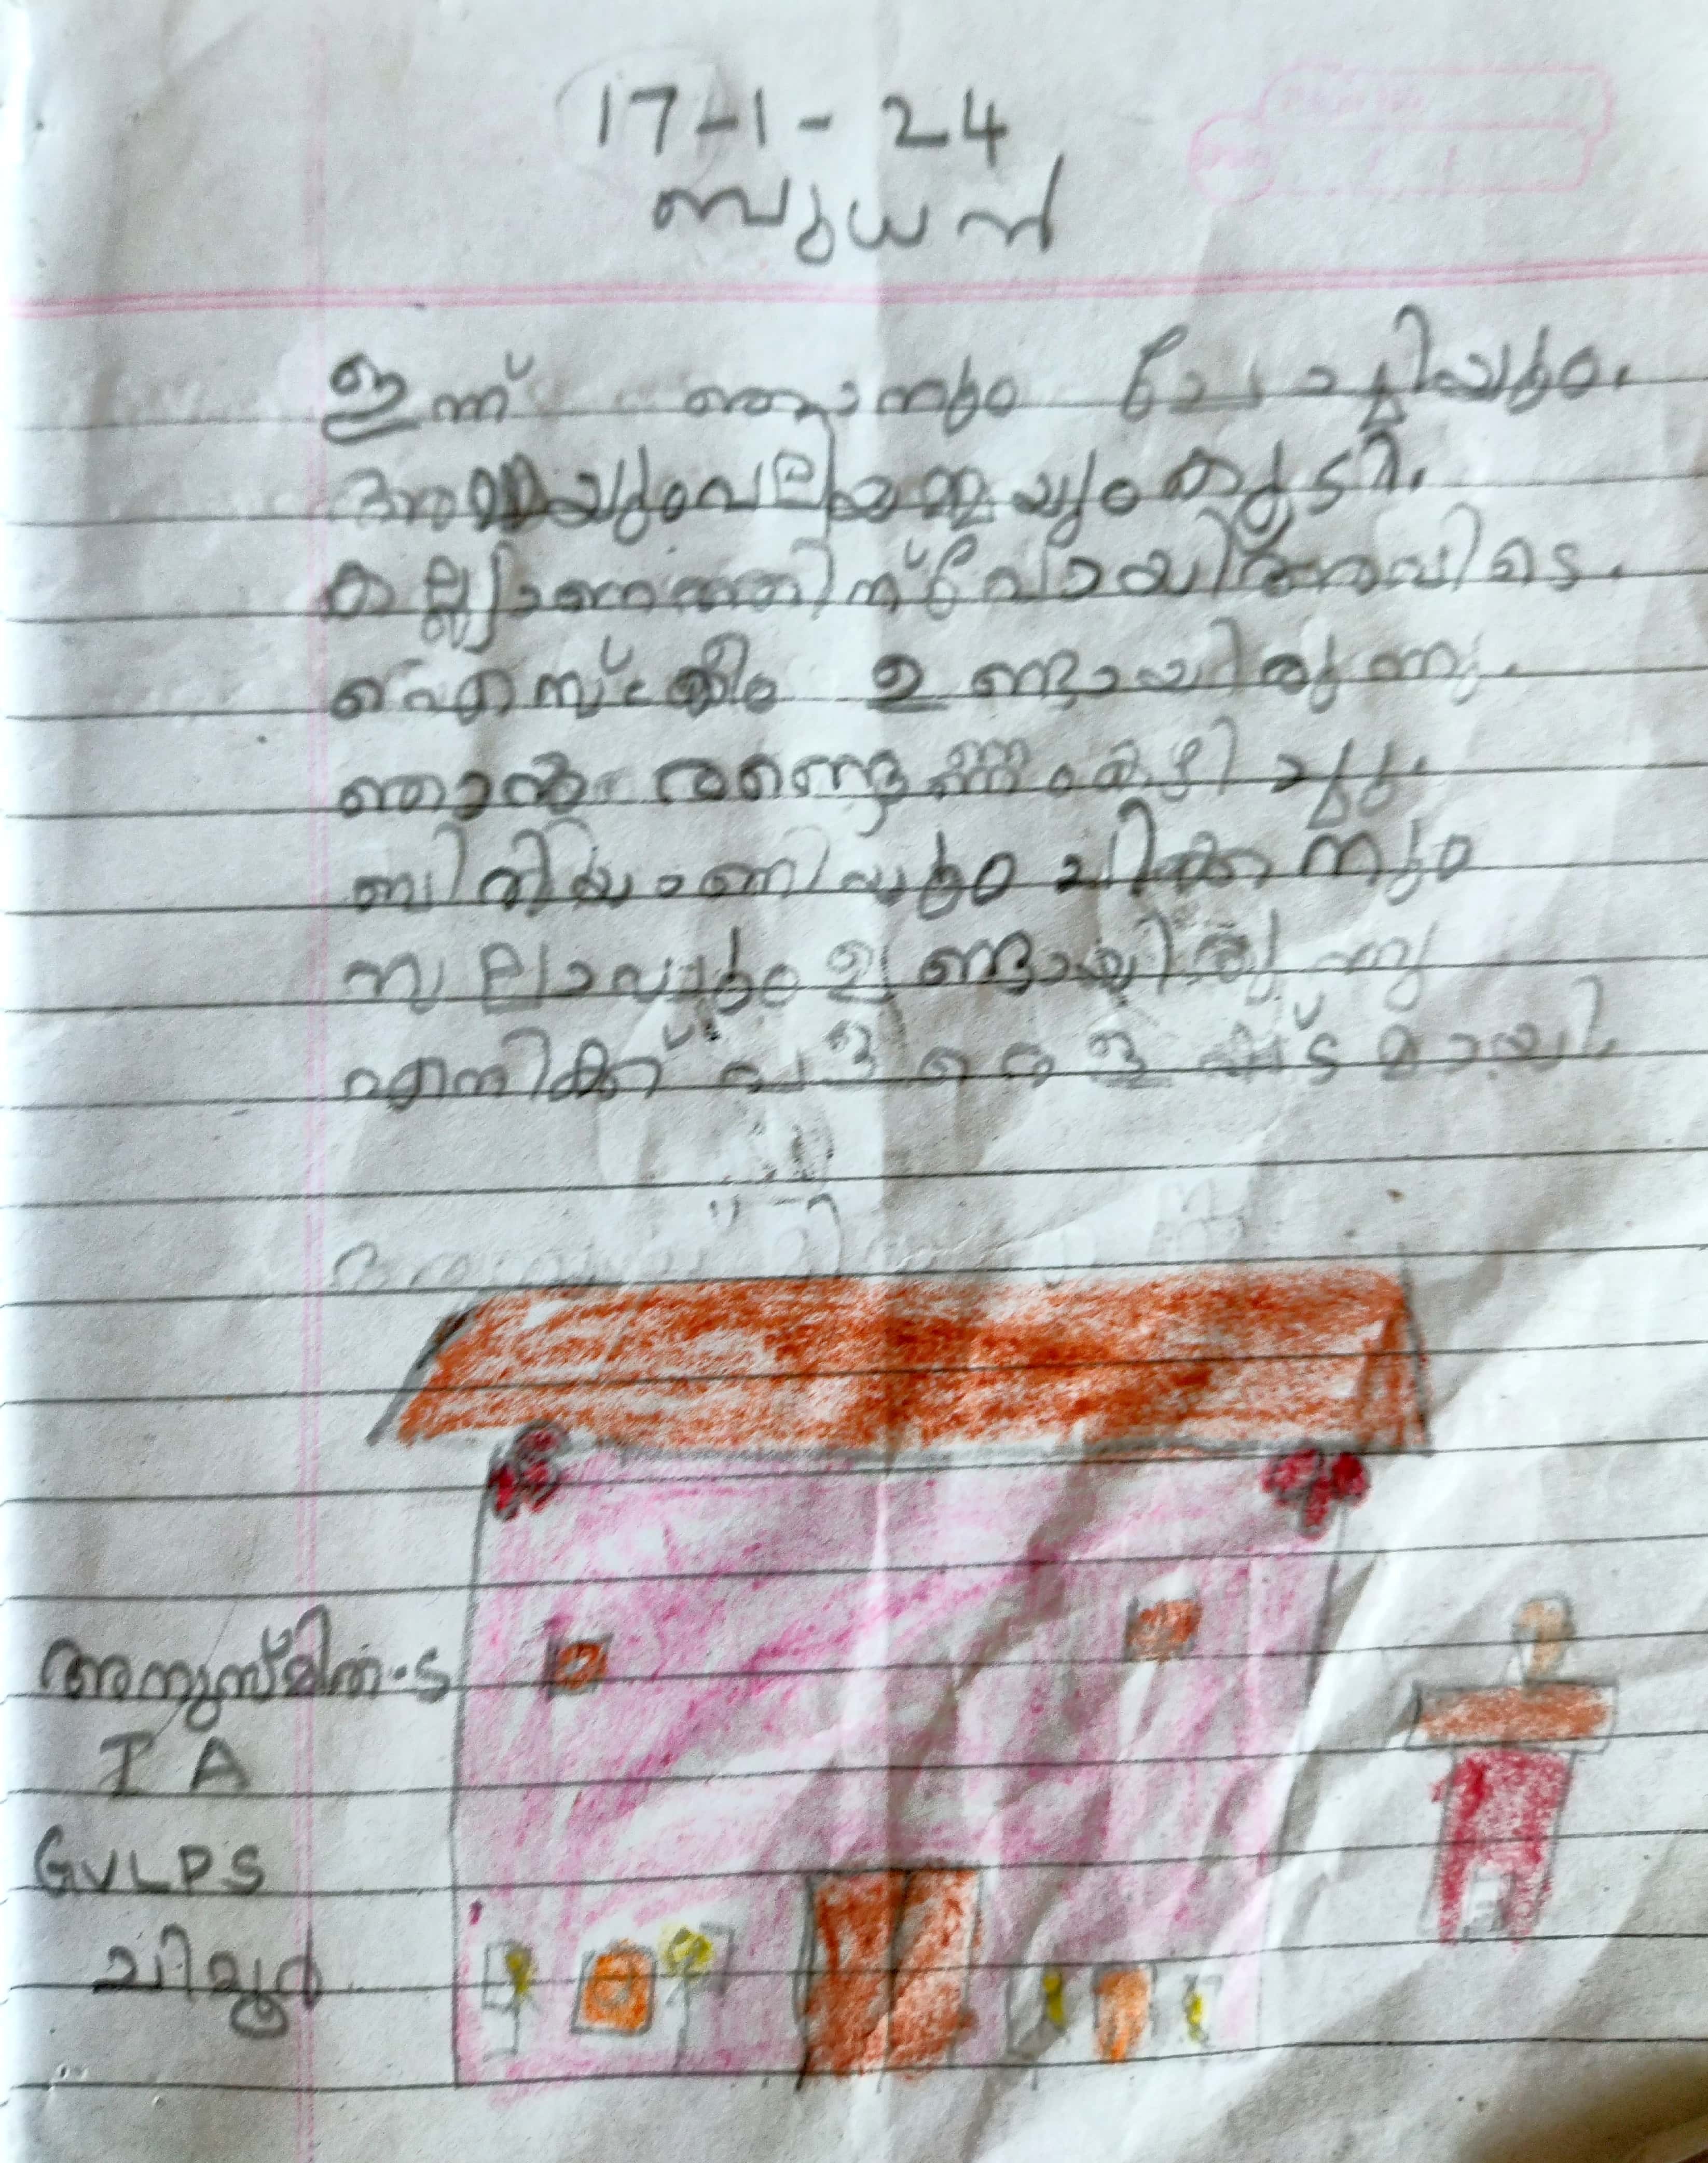 17-1-24
ബുധൻ
ഇന്ന് ഞാനും ചേച്ചിയും.
അമ്മയും വലിയമ്മയും കൂടി.
കല്ല്യാണത്തിന് പോയി അവിടെ.
ഐസ്ക്രീം ഉണ്ടായിരുന്നു.
ഞാൻ രണ്ടെണ്ണം കഴിച്ചു.
ബിരിയാണിയും ചിക്കനും
സലാഡും ഉണ്ടായിരുന്നു
എനിക്ക് വളരെ ഇഷ്ടമായി.
അനുസ്മിത.S
I A
GVLPS
ചിറ്റൂർ